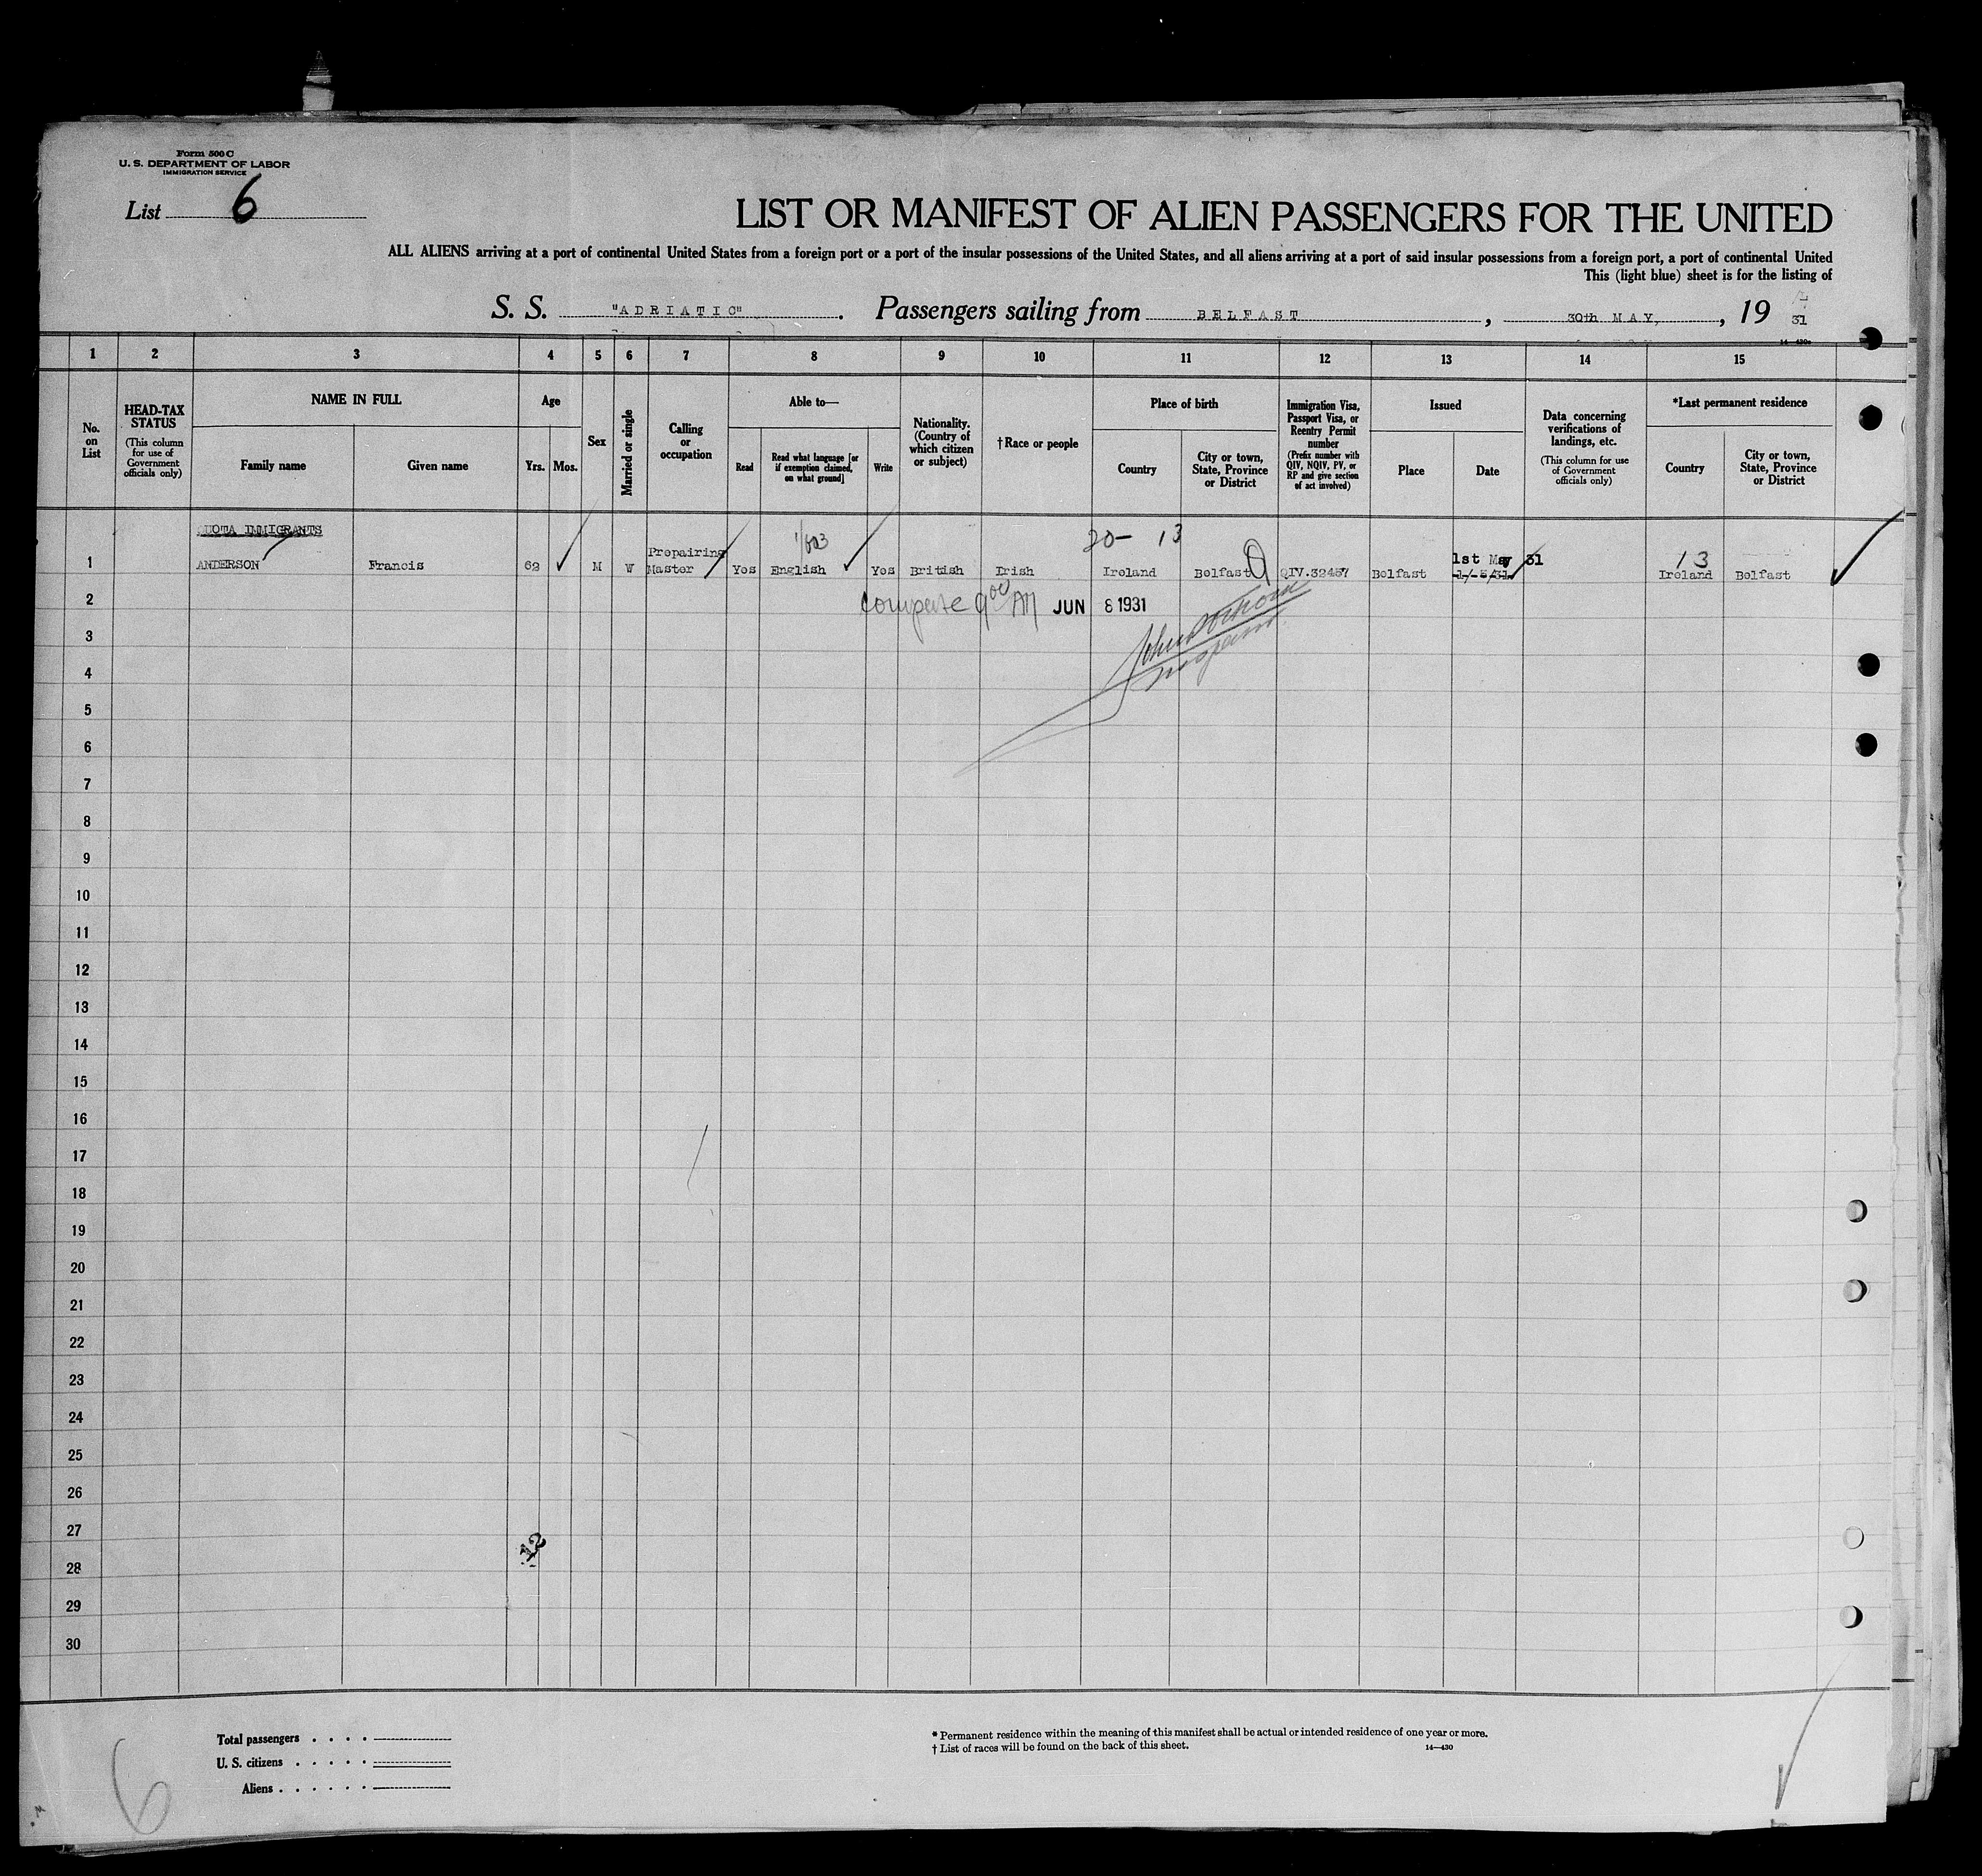 Form 500 C
U. S. DEPARTMENT OF LABOR
IMMIGRATION SERVICE
List 6
LIST OR MANIFEST OF ALIEN PASSENGERS FOR THE UNITED
ALL ALIENS arriving at a port of continental United States from a foreign port or a port of the insular possessions of the United States, and all aliens arriving at a port of said insular possessions from a foreign port, a port of continental United
This (light blue) sheet is for the listing of
S. S. "ADRIATIC". Passengers sailing from BELFAST, 30th MAY, 19 31
14—430a
1 2 3 4 5 6 7 8 9 10 11 12 13 14 15
No. on List
HEAD-TAX STATUS
(This column for use of Government officials only)
NAME IN FULL
Family name
Given name
Age
Yrs. Mos.
Sex
Married or single
Calling or occupation
Able to—
Read
Read what language [or if exemption claimed, on what ground]
Write
Nationality. (Country of which citizen or subject)
†Race or people
Place of birth
Country
City or town, State, Province or District
Immigration Visa, Passport Visa, or Reentry Permit number
(Prefix number with QIV, NQIV, PV, or RP and give section of act involved)
Issued
Place
Date
Data concerning verifications of landings, etc.
(This column for use of Government officials only)
*Last permanent residence
Country
City or town, State, Province or District
QUOTA IMMIGRANTS
20- 13
13
1 ANDERSON Francis 62 M W Prepairing Master Yes English Yes British Irish Ireland Belfast QIV.32457 Belfast 1st May 31 1/-5/31 Ireland Belfast
2 compare 9 00 AM JUN 8 1931
3
4
5
6
7
8
9
10
11
12
13
14
15
16
17
18
19
20
21
22
23
24
25
26
27
28
29
30
Total passengers . . . .
U. S. citizens . . . . .
Aliens . . . . . .
* Permanent residence within the meaning of this manifest shall be actual or intended residence of one year or more.
† List of races will be found on the back of this sheet.
14—430
6